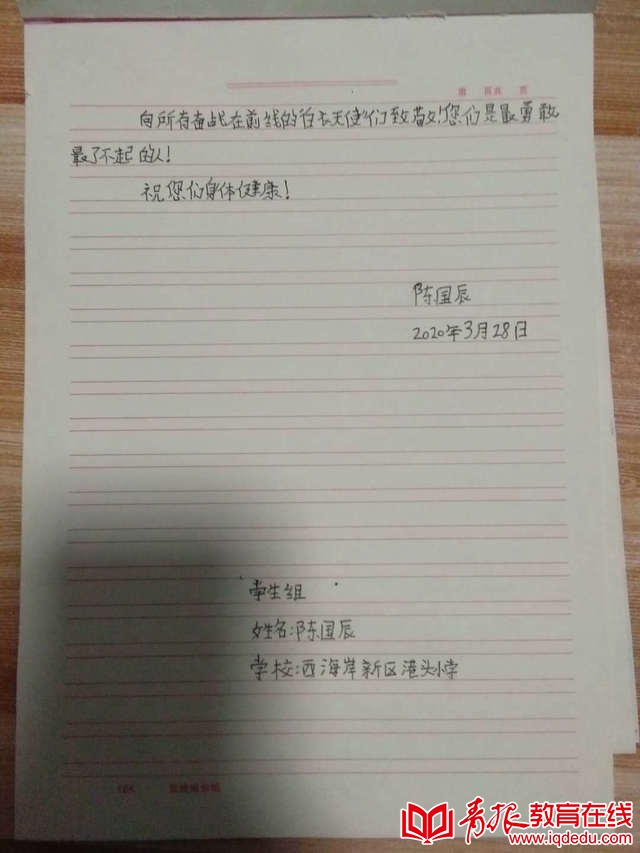 第 页共 页
向所有奋战在前线的白衣天使们致敬!您们是最勇敢
最了不起的人!
祝您们身体健康!
陈国辰
2020年3月28日
学生组
姓名:陈国辰
学校:西海岸新区港头小学
16K
青报教育在线
www.iqdedu.com